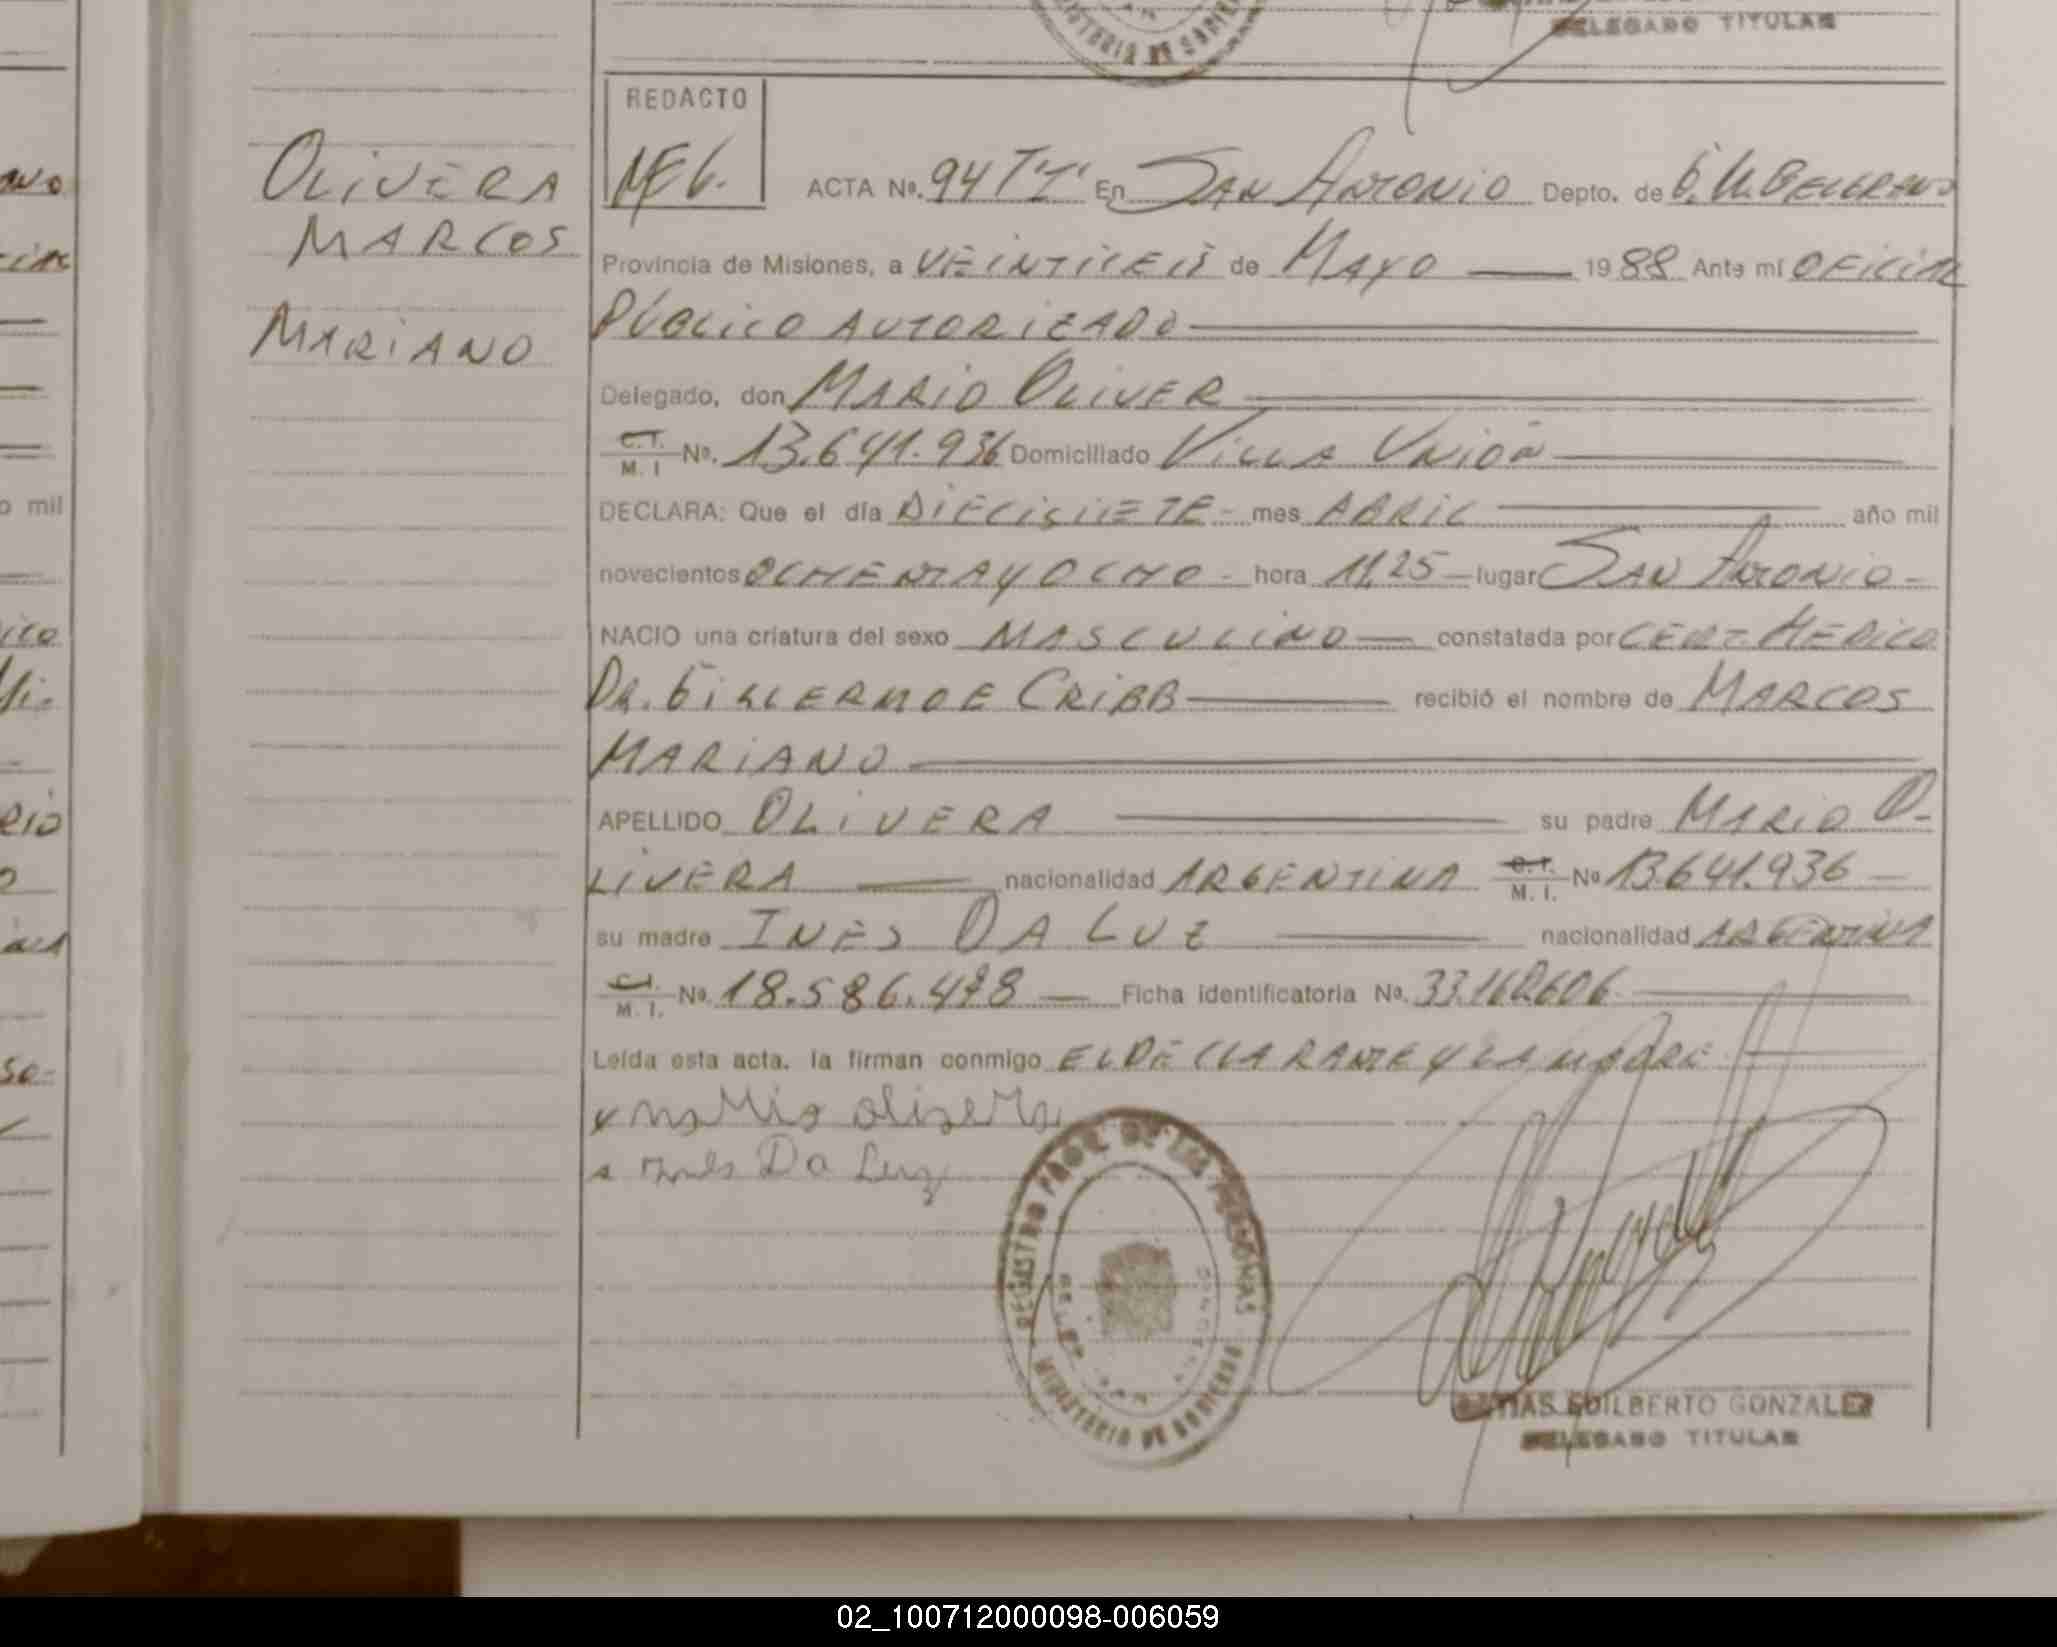 DELEGADO TITULAR
REDACTO
OLIVERA
MARCOS
MARIANO
ACTA No. 94 TºIº En SAN ANTONIO Depto. de G. M. BELGRANO
Provincia de Misiones, a VEINTISEIS de MAYO 1988 Ante mí OFICIAL
PUBLICO AUTORIZADO
Delegado, don MARIO OLIVER
C.I. M. I No. 13.641.936 Domiciliado VILLA UNIÓN
DECLARA: Que el día DIECISIETE - mes ABRIL año mil
novecientos OCHENTA Y OCHO - hora 11,25 - lugar SAN ANTONIO -
NACIO una criatura del sexo MASCULINO constatada por CERT. MEDICO
DR. GILLERMO E CRIBB recibió el nombre de MARCOS
MARIANO
APELLIDO OLIVERA su padre MARIO O-
LIVERA nacionalidad ARGENTINA C.I. M. I. No 13.641.936
su madre INES DA LUZ nacionalidad ARGENTINA
C.I. M. I. No. 18.586.478 Ficha identificatoria No. 33.162.606
Leída esta acta, la firman conmigo EL DECLARANTE Y LA MADRE
x Mario Olivera
x Ines Da Luz
REGISTRO PROV. DE LAS PERSONAS
MINISTERIO DE GOBIERNO
MATIAS EDILBERTO GONZALEZ
DELEGADO TITULAR
02_100712000098-006059